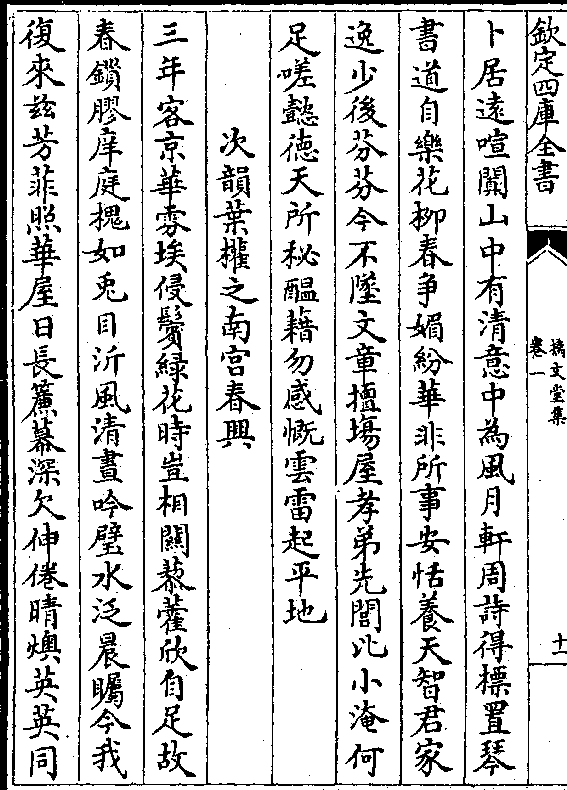 欽定四庫全書
摛文堂集
卷一
十一
卜居遠喧闐山中有清意中為風月軒周詩得標置琴
書道自樂花柳春爭媚紛華非所事安恬養天智君家
逸少後芬芬今不墜文章擅塲屋孝弟先閭此小淹何
足嗟懿德天所秘醖藉勿感慨雲雷起平地
次韻葉權之南宮春興
三年客京華雰埃侵鬢緑花時豈相關藜藿欣自足故
春鎻膠庠庭槐如兎目沂風清晝吟璧水泛晨矚今我
復來兹芳菲照華屋日長簾幕深欠伸倦晴燠英英同